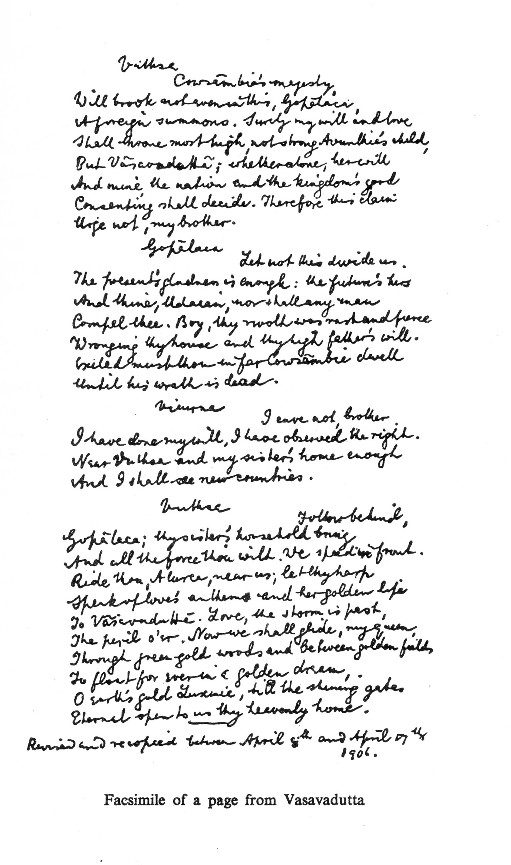 Vuthsa
Cowsāmbie's majesty
Will brook not even in this, Gopālaca,
A foreign summons. Surely my will and love
Shall throne most high, not strong Avunthie's child,
But Vāsavaduttā; whether alone, her will
And mine the nation and the kingdom's good
Consenting shall decide. Therefore this claim
Urge not, my brother.
Gopālaca
Let not this divide us.
The present's gladness is enough: the future's hers
And thine, Udaian, nor shall any man
Compel thee. Boy, thy revolt was rash and fierce
Wronging thy house and thy high father's will.
Exiled must thou in far Cowsāmbie dwell
Until his wrath is dead.
Vicurna
I care not, brother.
I have done my will, I have observed the right.
Near Vuthsa and my sister's home enough
And I shall see new countries.
Vuthsa
Follow behind,
Gopālaca; thy sister's household bring
And all the force thou wilt. We speed in front.
Ride thou, Alurca, near us; let thy harp
Speak of love's anthems and her golden life
To Vāsavaduttā. Love, the storm is past,
The peril o'er. Now we shall glide, my queen,
Through green-gold woods and between golden fields
To float for ever in a golden dream,
O earth's gold Luxmie, till the shining gates
Eternal open to us thy heavenly home.
Revised and recopied between April 8th and April 17th
1906.
Facsimile of a page from Vasavadutta